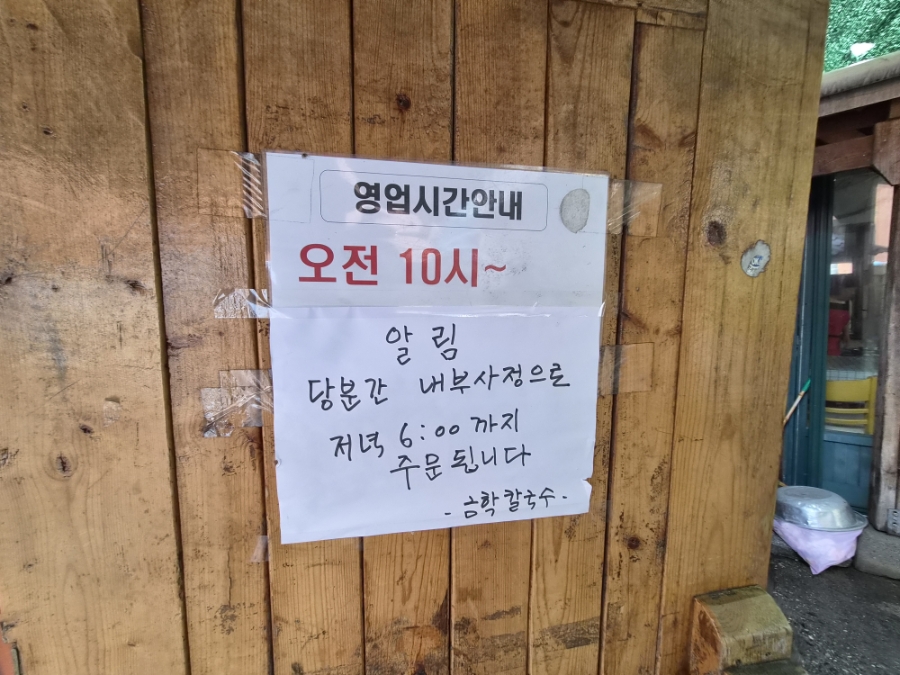 영업시간안내
오전 10시~
알 림
당분간 내부사정으로
저녁 6:00 까지
주문 됩니다
- 금학칼국수 -